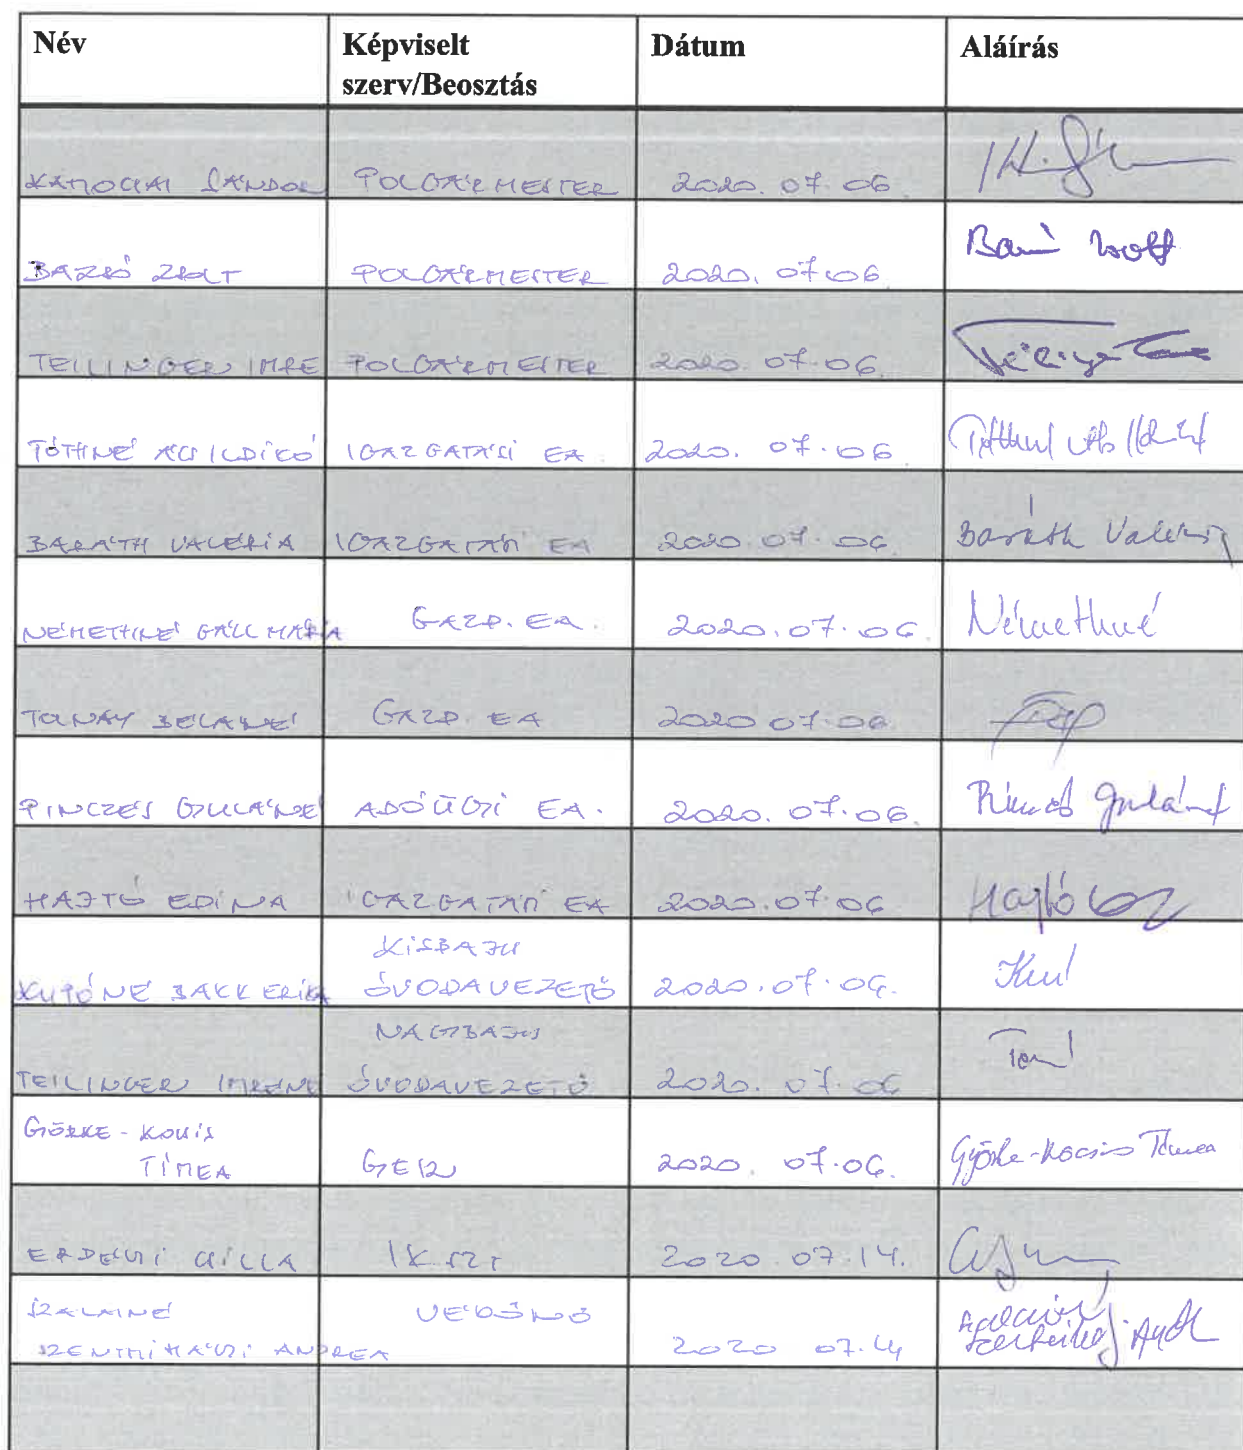 Név Képviselt szerv/Beosztás Dátum Aláírás
KAMOCSAI SÁNDOR POLGÁRMESTER 2020. 07. 06
BAZSÓ ZSOLT POLGÁRMESTER 2020. 07.06. Bazsó Zsolt
TEILINGER IMRE POLGÁRMESTER 2020. 07.06.
TÓTHNÉ ÁCS ILDIKÓ IGAZGATÁSI EA. 2020. 07.06. Tóthné Ács Ildikó
BARÁTH VALÉRIA IGAZGATÁSI EA 2020.07.06. Baráth Valéria
NÉMETHNÉ GÁLL MÁRIA GAZD. EA. 2020.07.06. Némethné
TOLNAY BÉLÁNÉ GAZD. EA 2020 07.06.
PINCZÉS GYULÁNÉ ADÓÜGYI EA. 2020. 07.06. Pinczés Gyuláné
HAJTÓ EDINA IGAZGATÁSI EA 2020.07.06 Hajtó
KISBAJCS
BAKK ERIKA ÓVODAVEZETŐ 2020.07.06.
NAGYBAJCS
TEILINGER IMRÉNÉ ÓVODAVEZETŐ 2020. 07.06
GYÖRKE-KOCSIS
TÍMEA 2020. 07.06. Györke-Kocsis Tímea
ERDÉLYI CSILLA IKSZT 2020 07.14.
SZALAINÉ VÉDŐNŐ
SZENTMIHÁLYI ANDREA 2020 07.14